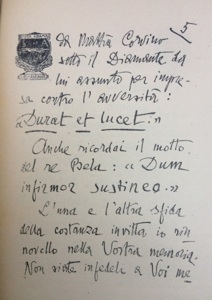 5
da Mattia Corvino
sotto il Diamante da
lui assunto per impre-
sa contro l'avversità:
«Durat et lucet.»
Anche ricordai il motto
del re Bela: «Dum
infirmor sustineo.»
L'una e l'altra sfida
della costanza invitta io rin
novello nella Vostra memoria.
Non siate infedeli a Voi me